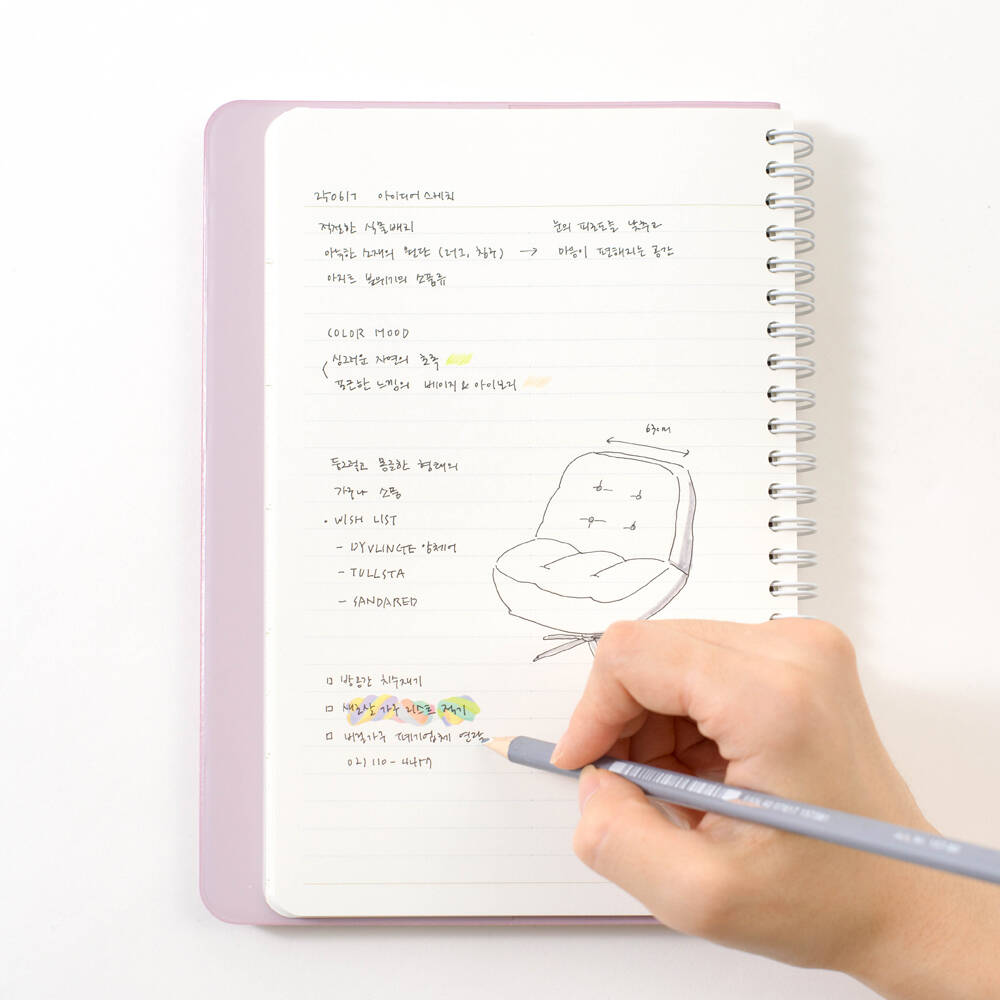 250617 아이디어 스케치
적절한 식물배치 눈의 피로도를 낮추고
아늑한 소재의 원단 (러그, 침구) → 마음이 편해지는 공간
아지트 분위기의 소품류
COLOR MOOD
싱그러운 자연의 초록
포근한 느낌의 베이지 & 아이보리
63cm
둥그렇고 뭉글한 형태의
가구나 소품
• WISH LIST
- DYVLINGE 암체어
- TULLSTA
- SANDARED
□ 방공간 치수재기
□ 새로살 가구 리스트 적기
□ 버릴가구 폐기업체 연락
02) 110-4457